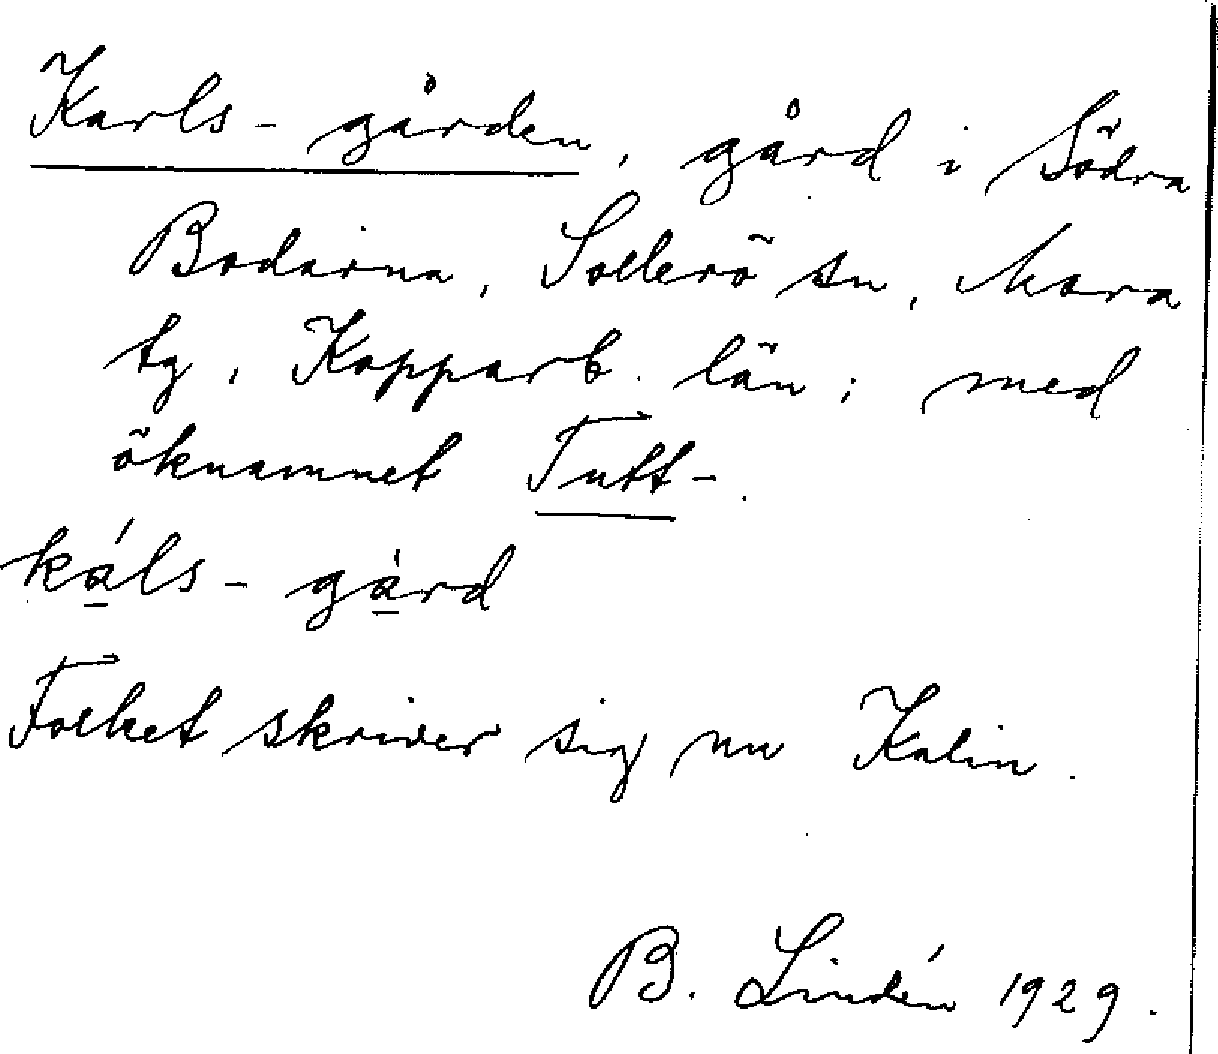 Karls-gården, gård i Södra
Bodarna, Sollerö sn, Mora
tg, Kopparb. län; med
öknamnet Tutt-.
ká̱ls-gà̱rd
Folket skriver sig nu Kalin.
B. Lindén 1929.